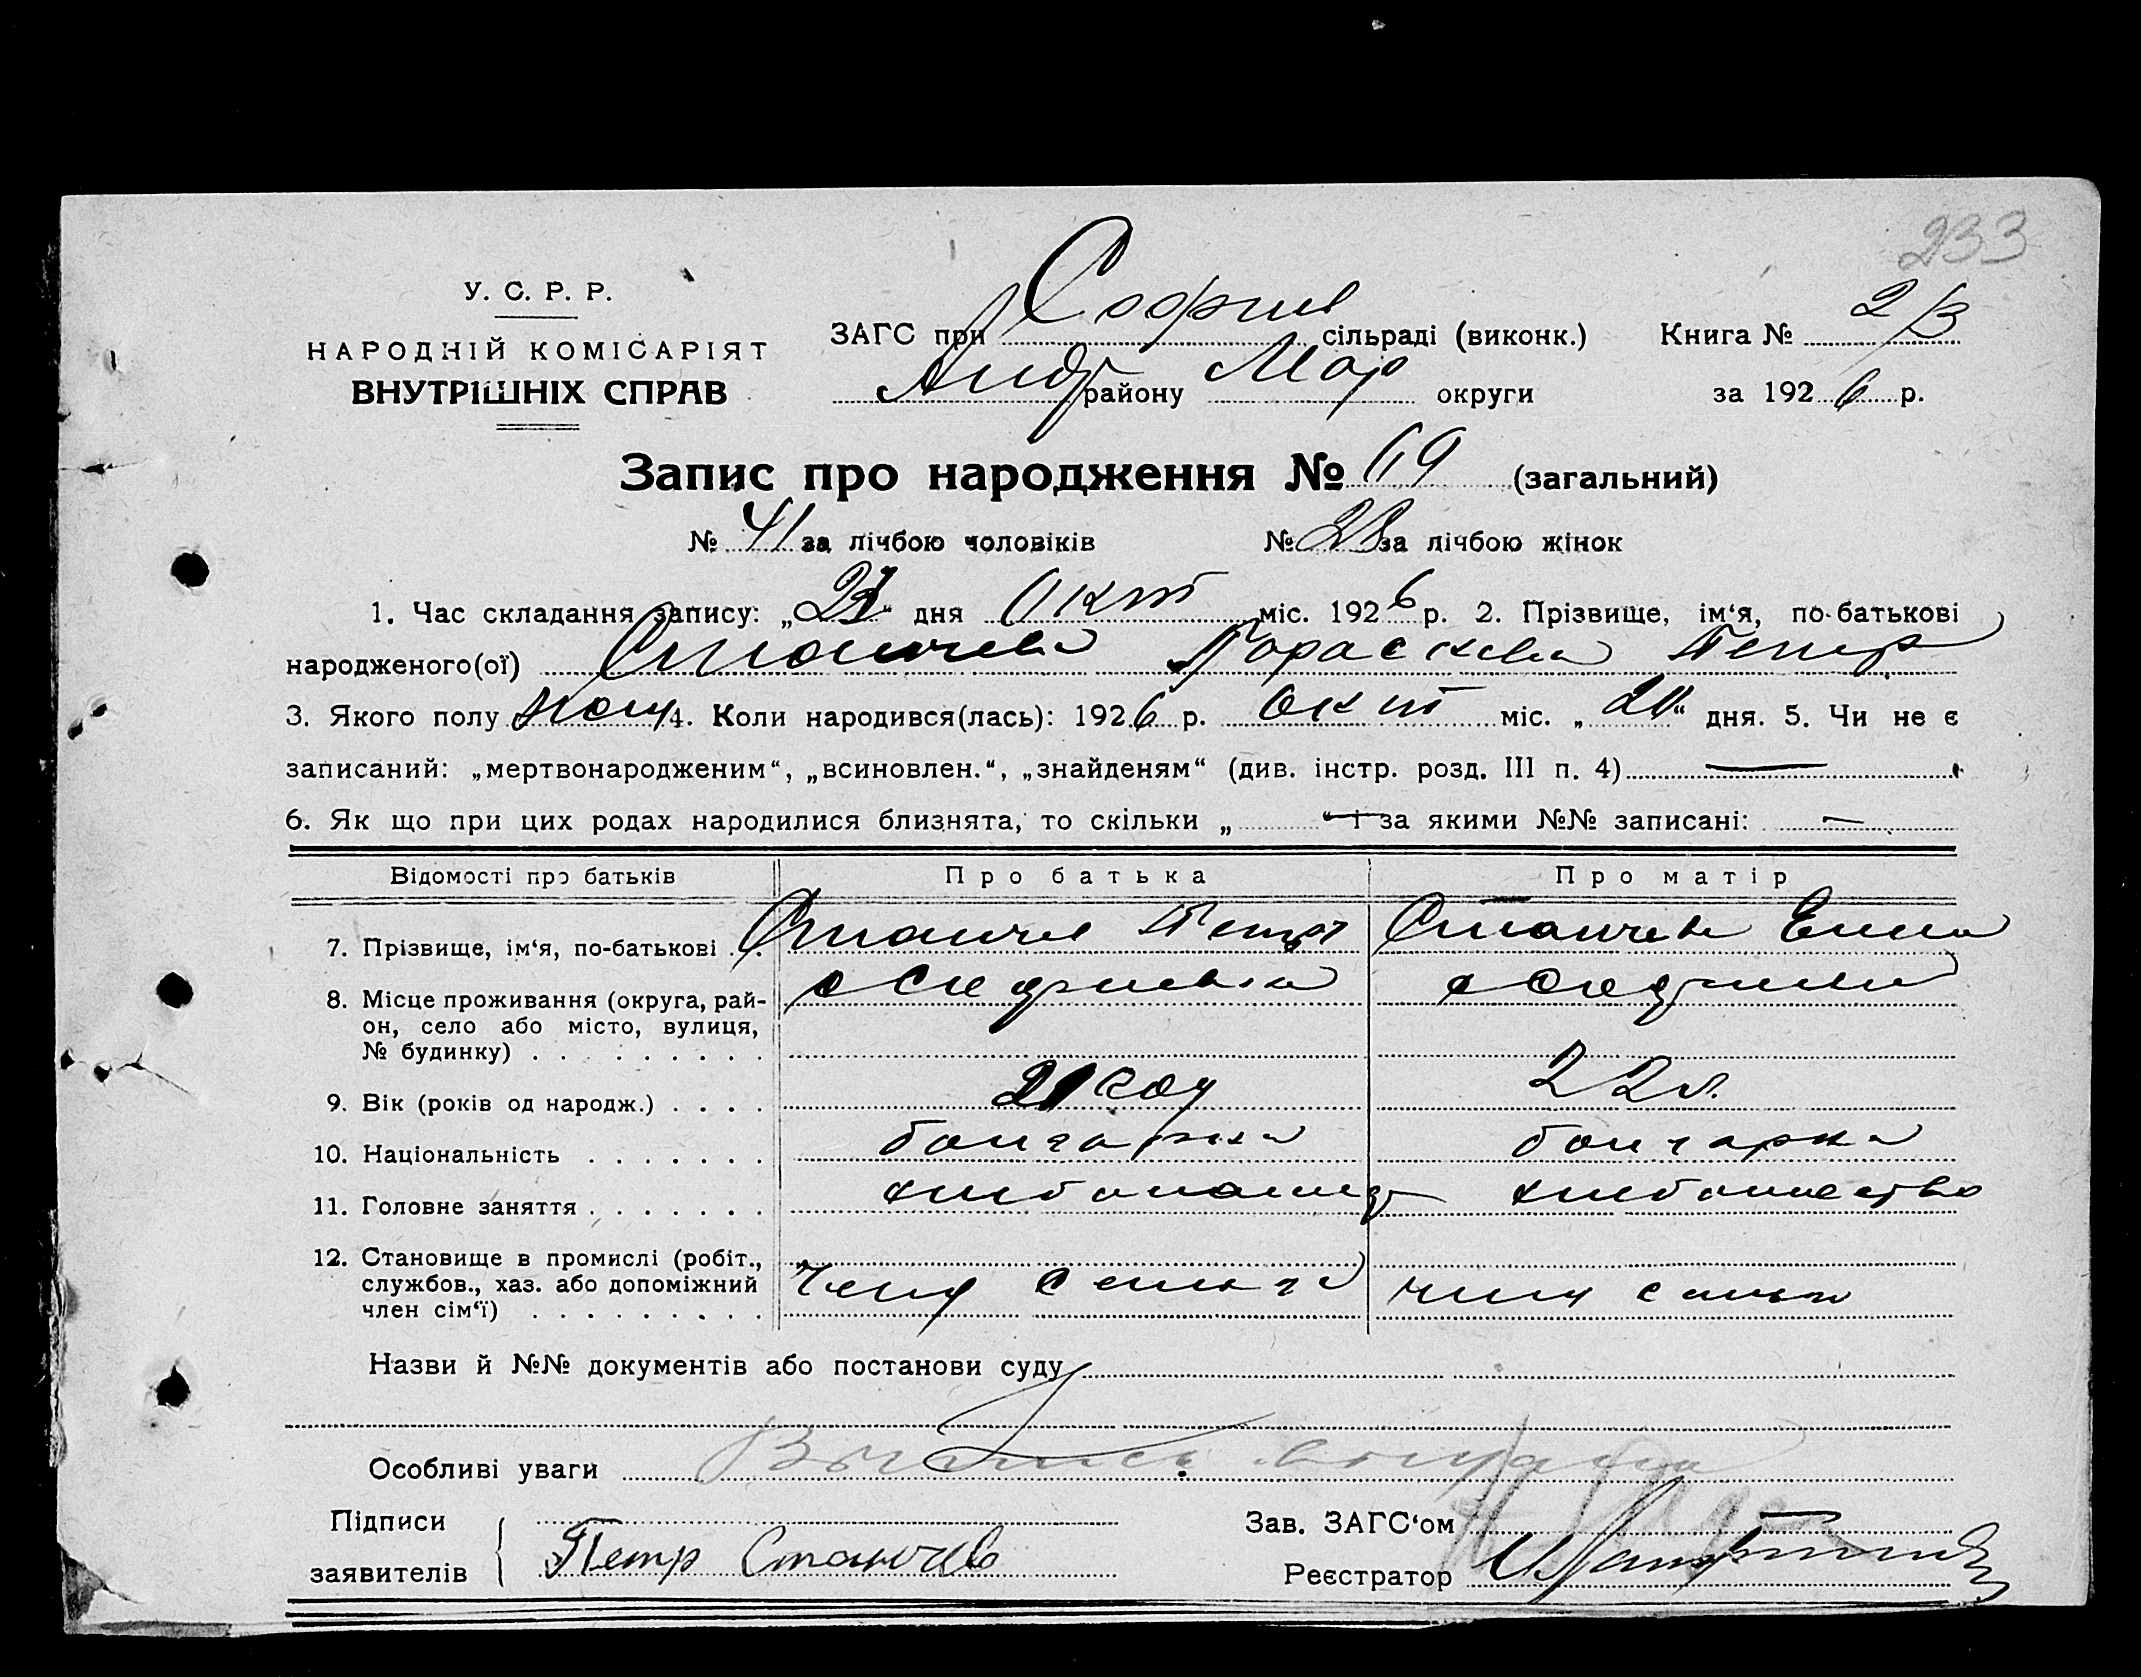 233
У. С. Р. Р.
НАРОДНІЙ КОМІСАРІЯТ
ВНУТРІШНІХ СПРАВ
ЗАГС при Софиев сільраді (виконк.) Книга № 2/3
Андр району Мар округи за 1926 р.
Запис про народження № 69 (загальний)
№ 41 за лічбою чоловіків № 28 за лічбою жінок
1. Час складання запису: „ “ дня Окт міс. 1926 р. 2. Прізвище, ім‘я, по-батькові
народженого(ої) Станчева Параскева Петр
3. Якого полу жен 4. Коли народився(лась): 1926 р. окт міс. „20“ дня. 5. Чи не є
записаний: „мертвонародженим“, „всиновлен.“, „знайденям“ (див. інстр. розд. III п. 4) —
6. Як що при цих родах народилися близнята, то скільки „ “ і за якими №№ записані: —
Відомості про батьків Про батька Про матір
7. Прізвище, ім‘я, по-батькові . . Станчев Петр Станчева Елена
8. Місце проживання (округа, рай-
он, село або місто, вулиця,
№ будинку) . . . . . . . . . с Софиевка с Софиевка
9. Вік (років од народж.) . . . . 21 год 22 л.
10. Національність . . . . . . . болгарка болгарка
11. Головне заняття . . . . . . . хлебопашец хлебопашество
12. Становище в промислі (робіт.,
службов., хаз. або допоміжний
член сім‘ї) . . . . . . . . . член семьи член семьи
Назви й №№ документів або постанови суду
Особливі уваги
Підписи
заявителів Петр Станчев
Зав. ЗАГС‘ом
Реєстратор